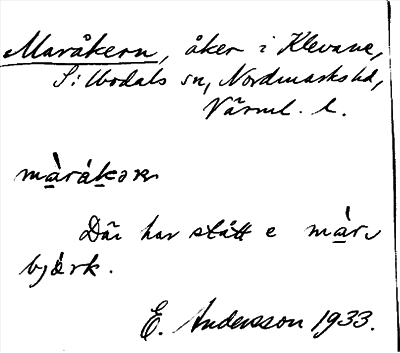 Maråkern, åker i Klevane,
S: Bodals sn, Nordmarks hd,
Värml. l.
màråkərn
Där har stått e màr
bjørk.
E. Andersson 1933.